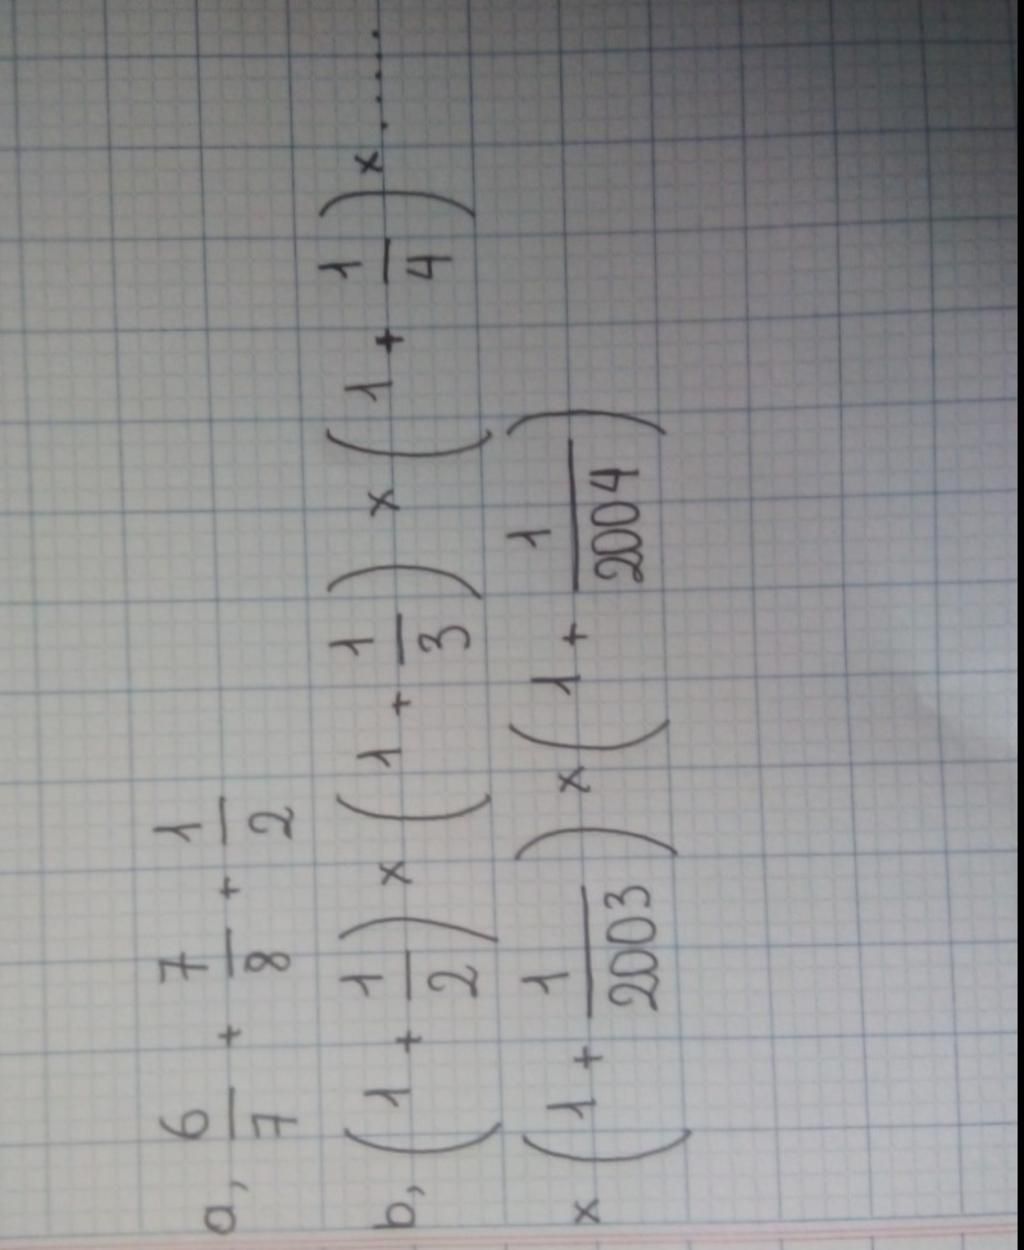 a, 6/7 + 7/8 + 1/2
b, (1 + 1/2) x (1 + 1/3) x (1 + 1/4) x ......
x (1 + 1/2003) x (1 + 1/2004)